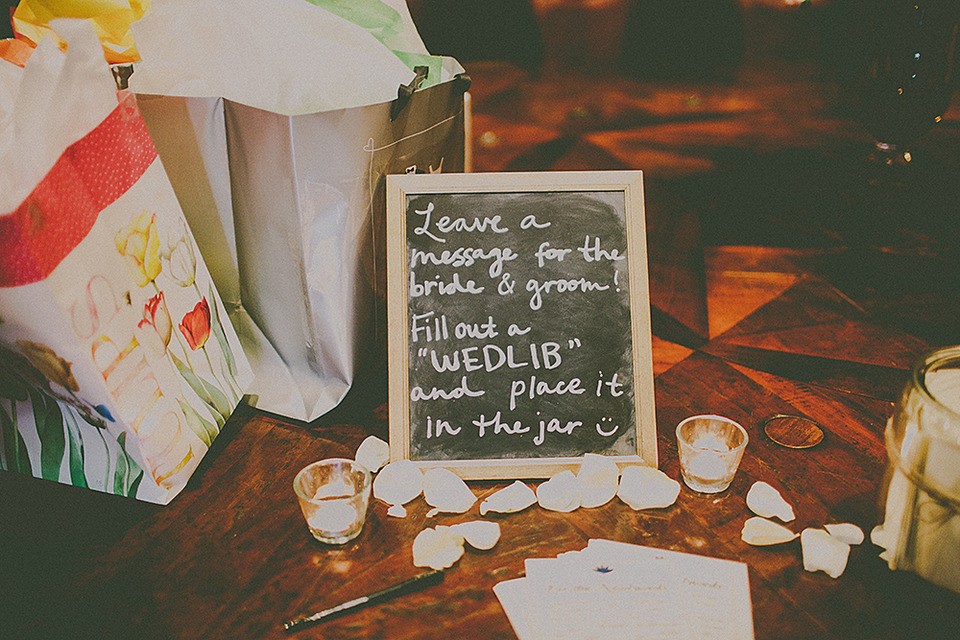 Leave a
message for the
bride & groom!
Fill out a
"WEDLIB"
and place it
in the jar ☺